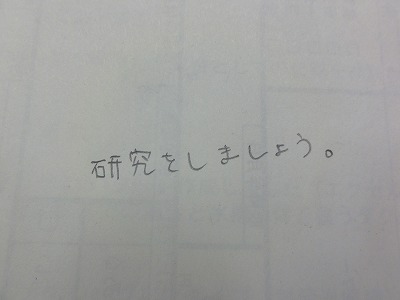 研究をしましょう。